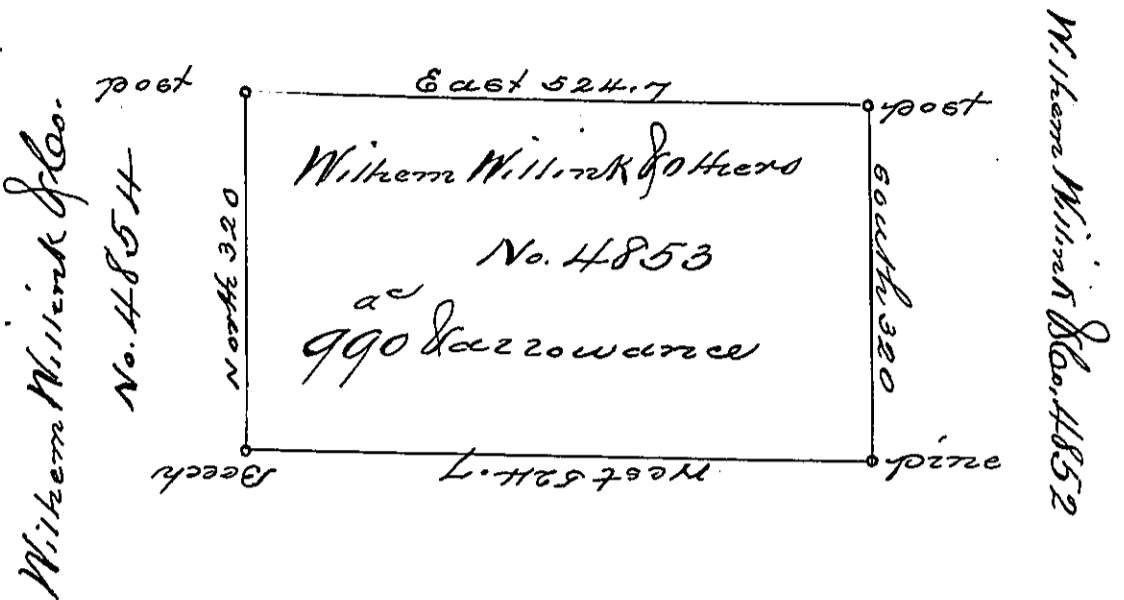 Wilhem Willink & Co.
No. 4854
post
East 524.7
post
North 320
Wilhem Willink & others
No. 4853
990 ac & allowance
South 320
Beech
West 524.7
pine
Wilhem Willink & Co. 4852